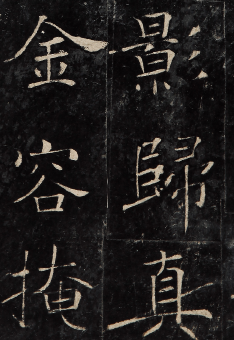 影歸真
金容掩